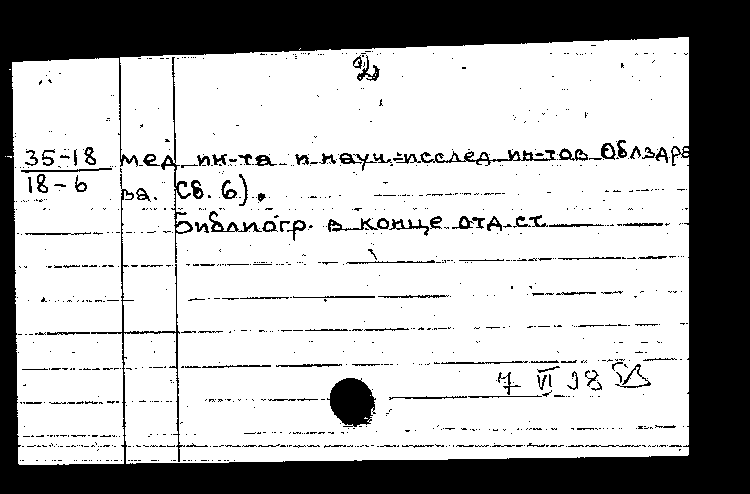 2
35-18 мед. ин-та и науч.-исслед. ин-тов Облздра
18-6 ва. Сб. 6).
Библиогр. в конце отд. ст.
7 VI 98